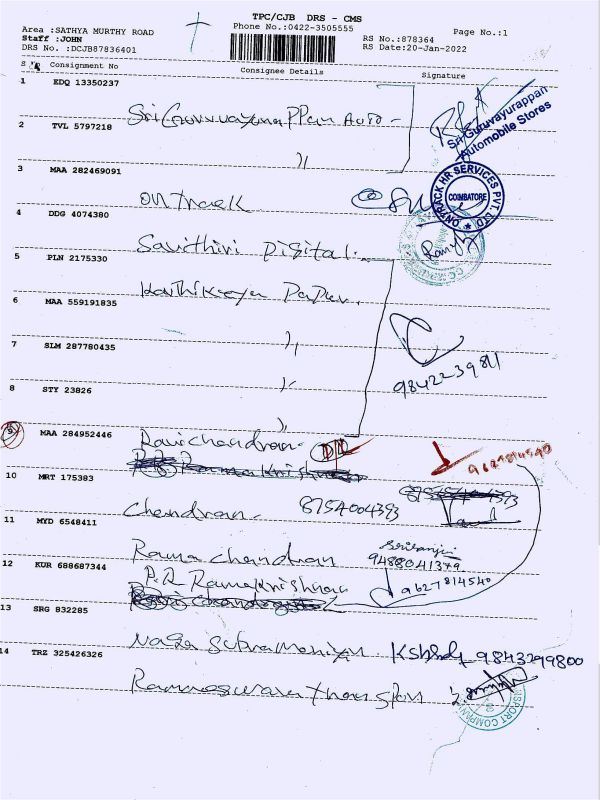 TPC/CJB DRS - CMS
Area :SATHYA MURTHY ROAD
Phone No.:0422-3505555
Page No.:1
Staff :JOHN
RS No.:878364
DRS No. :DCJB87836401
RS Date:20-Jan-2022
Consignment No
Consignee Details
Signature
1 EDQ 13350237
Sri Guruvayurappan Auto -
Sri Guruvayurappan
Automobile Stores
2 TVL 5797218
"
3 MAA 282469091
ontrack
ONTRACK HR SERVICES PVT LTD
COIMBATORE
4 DDG 4074380
Savithiri Digital.
5 PLN 2175330
Karthikeya Paper.
6 MAA 559191835
"
9842239811
7 SLM 287780435
"
8 STY 23826
"
9 MAA 284952446
Ravichandran.
9627814540
10 MRT 175383
Chendran.
8754004393
11 MYD 6548411
Rama chandran
9488041379
12 KUR 688687344
P.R Ramakrishnan
9627814540
13 SRG 832285
Naga Subramaniyan
9843299800
14 TRZ 325426326
Rameswaram